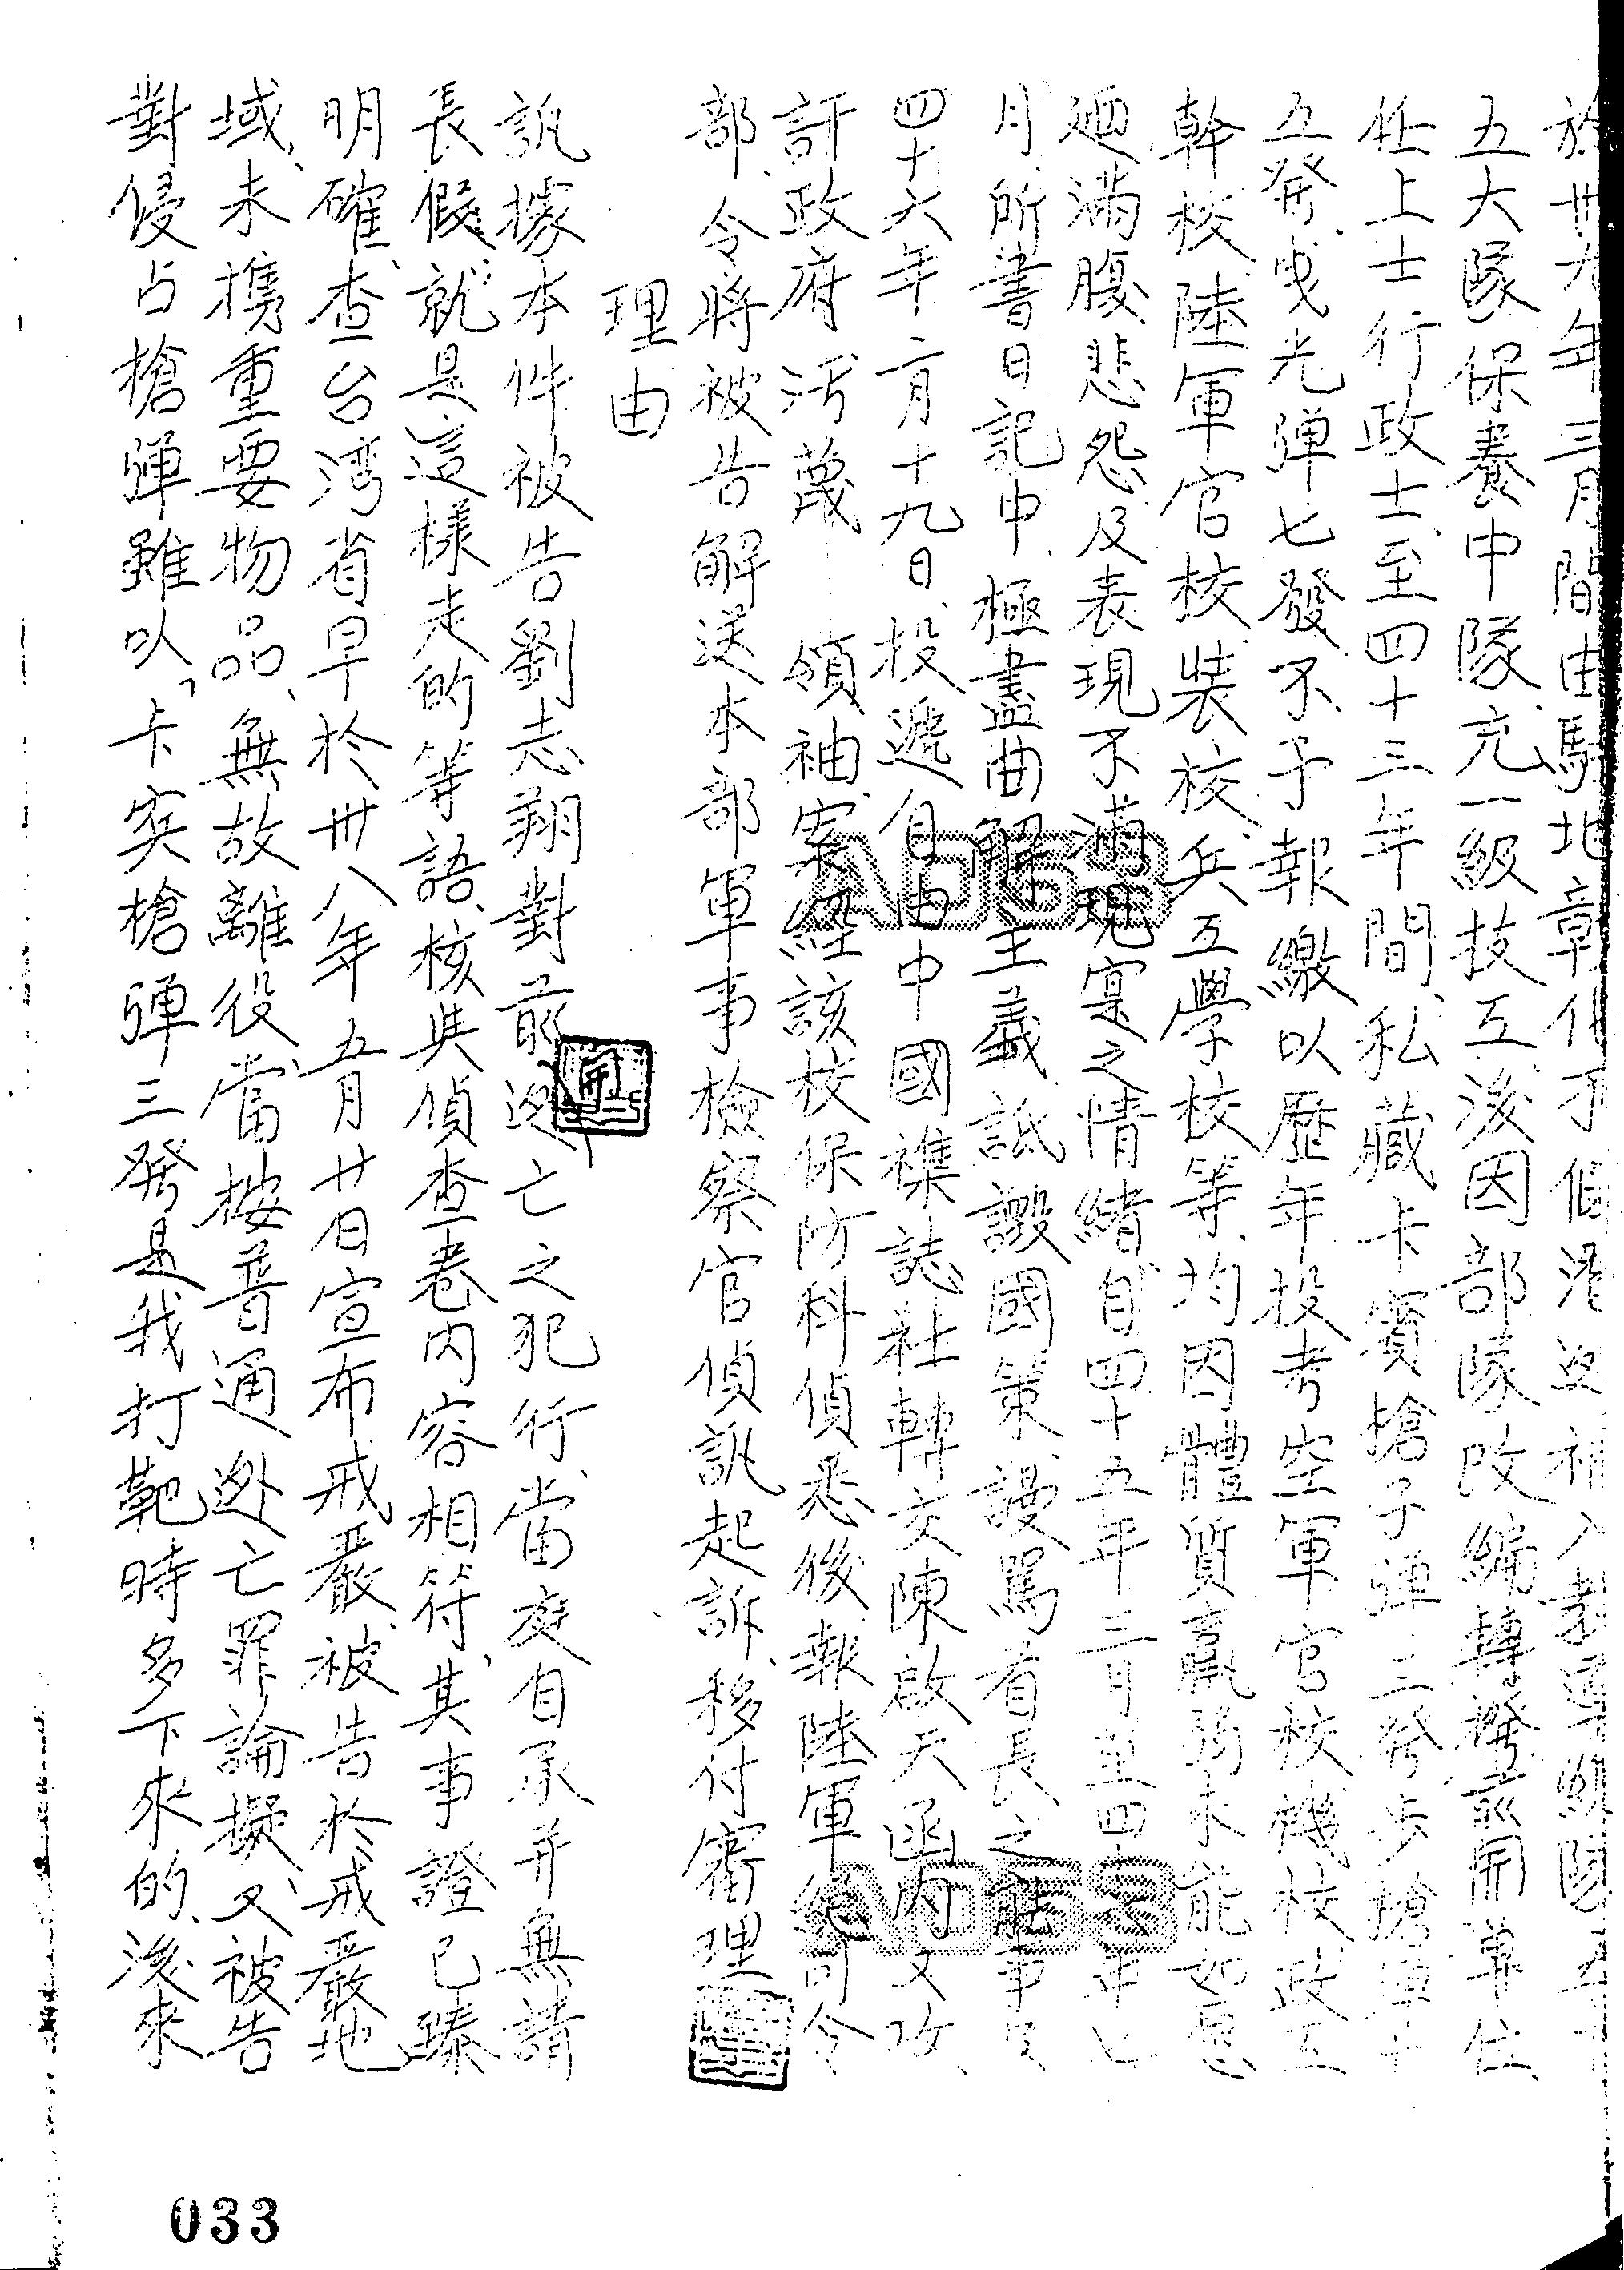 於卅九年三月間由駐地彰化不假潛逃補入裝
五大隊保養中隊充一級技工後因部隊改編轉撥前開單位
任上士行政士至四十三年間私藏卡賓槍子彈三發步槍彈十
五發曳光彈七發不予報繳以歷年投考空軍官校機校政工
幹校陸軍官校裝校兵工學校等均因體質羸弱未能如愿
迺滿腹悲怨及表現不滿現寔之情緒自四十五年三月至四十六年七
月所書日記中極盡曲解主義詆譭國策謾罵首長之能事
四十六年二月十九日投遞自由中國襍誌社轉交陳啟天函內又攻
訐政府汚蔑 領袖案經該校保防科偵悉後報陸軍總司令
部令將被告解送本部軍事檢察官偵訊起訴移付審理
理由
訊據本件被告劉志翔對前逃亡之犯行當庭自承并無請
長假就是這樣走的等語核與偵查卷內容相符其事證已臻
明確查台湾省早於卅八年五月廿日宣布戒嚴被告於戒嚴地
域未携重要物品無故離役當按普通逃亡罪論擬又被告
對侵占槍彈雖以「卡宾槍彈三發是我打靶時多下來的後來
033
AD53
AD53